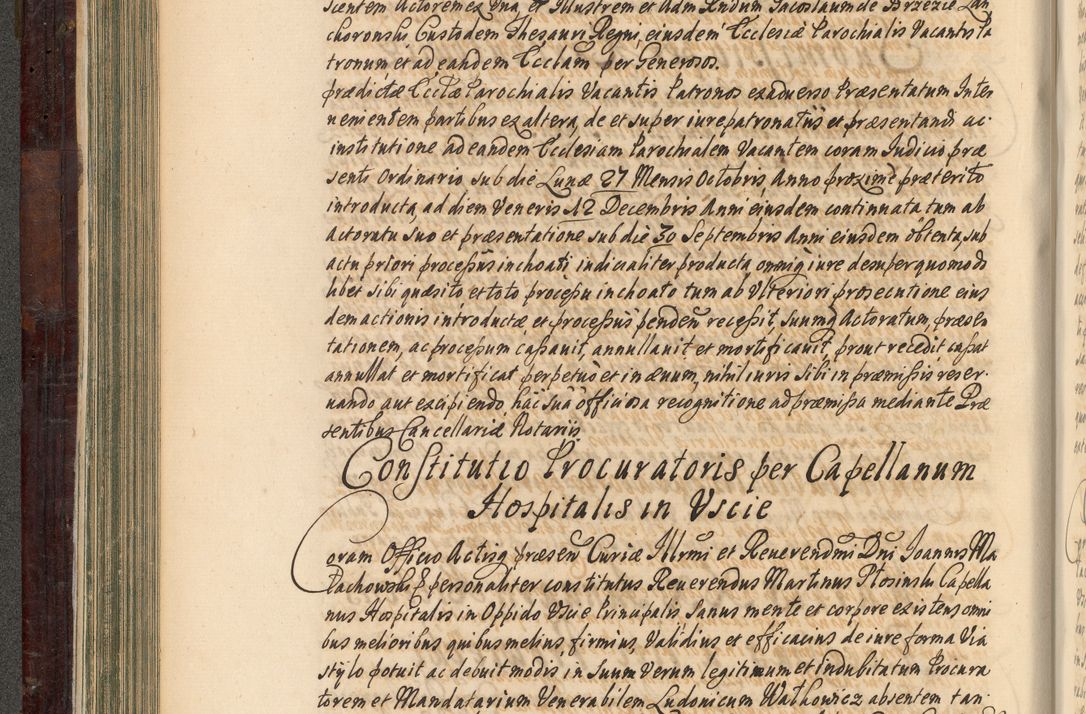 scentem Actorem ex vna, et Illustrem et Adm Rndum Jacoslaum de Brzezie Lan
choronski Custodem Thesauri Regni, eiusdem Ecclesiæ Parochialis Vacantis Pa
tronum, et ad eandem Eccl̃am per Generosos.
prædictæ Eccl̃æ Parochialis Vacantis Patronos ex aduerso Præsentatum Inter
uenientem partibus ex altera, de et super iure patronatus et præsentandi ac
institutione ad eandem Ecclesiam Parochialem Vacantem coram Judicio præ
senti Ordinario sub die Lunæ 27 Mensis Octobris Anno proxime præterito
introducta, ad diem Veneris 12 Decembris Anni eiusdem continuata tum ab
Actoratu suo et præsentatione sub die 30 Septembris Anni eiusdem obtenta, sub
actu priori processus inchoati iudicialiter producta, omniq iure desuper quomodo
libet sibi quæsito et toto processu inchoato tum ab Vlteriori prosecutione eius
dem actionis introductæ, et processus penden̄ recessit, suumq Actoratum, præsen
tationem, ac processum cassauit, annullauit et mortificauit, prout recedit cassat
annullat et mortificat perpetuo et in æuum, nihil iuris sibi in præmissis reser
uando aut excipiendo, hac sua officiosa recognitione ad præmissa mediante Præ
sentibus Cancellariæ Notariis.
Constitutio Procuratoris per Capellanum
Hospitalis in Vscie
Coram Officio Actisq præsen̄ Curiæ Illrmi et Reuerendmi Dni Joannis Ma
łachowski E personaliter constitutus Reuerendus Martinus Płosinski Capella
nus Hospitalis in Oppido Vscie Principalis sanus mente et corpore existens omni
bus melioribus quibus melius, firmius, Validius et efficacius de iure forma Via
stylo potuit ac debuit modis in suum Verum legitimum et Indubitatum Procura
torem et Mandatarium Venerabilem Ludonicum Wałkowicz absentem tan